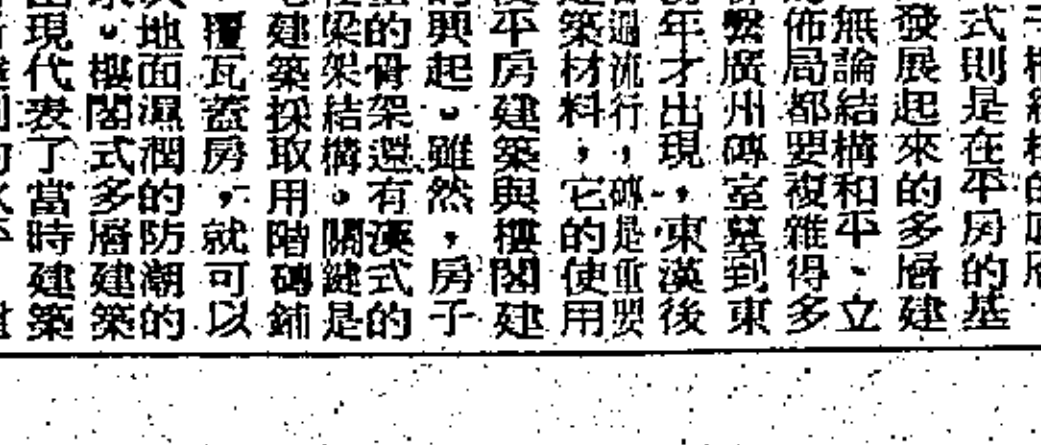 式則是在平房的基
發展起來的多層建
無論結構和平、立
佈局都要複雜得多
繫廣州磚室墓到東
年才出現，東漢後
過流行，磚是重要
築材料，它的使用
平房建築與樓閣建
興起。雖然，房子
的骨架還有漢式的
梁架結構。關鍵是
建築採取用階磚鋪
覆瓦蓋房，就可以
地面濕潤的防潮的
。樓閣式多層建築
現代表了當時建築